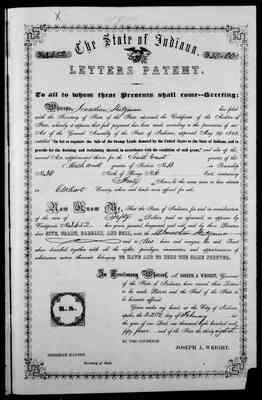 The State of Indiana.
LETTERS PATENT.
To all to whom these Presents shall come—Greeting:
Whereas, Jonathan has filed
with the Secretary of State of the State aforesaid the Certificate of the Auditor of
State, whereby it appears that full payment has been made according to the provisions of an
Act of the General Assembly of the State of Indiana, approved May 29, 1852,
entitled "An Act to regulate the sale of the Swamp Lands donated by the United States to the State of Indiana, and to
provide for the draining and reclaiming thereof in accordance with the condition of said grant," and also of the
several Acts supplemental thereto, for the South East quarter of the
quarter of Section No. in Township
No. North of Range No. East, containing
Forty Acres, be the same more or less, situate
in Elkhart County, where such lands were offered for sale.
Now Know Ye, That the State of Indiana, for and in consideration
of the sum of Fifty Dollars, paid as aforesaid, as appears by
Certificate No. have given, granted, bargained and sold, and by these Presents
DO GIVE, GRANT, BARGAIN, AND SELL, unto the said Jonathan
and to his Heirs and assigns, the said Tract
above described, together with all the rights, privileges, immunities, and appurtenances of
whatsoever nature thereunto belonging, TO HAVE AND TO HOLD THE SAME FOREVER.
In Testimony Whereof, I, JOSEPH A. WRIGHT, Governor
of the State of Indiana, have caused these Letters
to be made Patent, and the Seal of the State to
be hereunto affixed.
Given under my hand, at the City of Indianapolis,
the day of February in
the year of our Lord, one thousand eight hundred and
fifty four and of the State the thirty eighth
L.S.
BY THE GOVERNOR
JOSEPH A. WRIGHT.
NEHEMIAH HAYDEN
Secretary of State